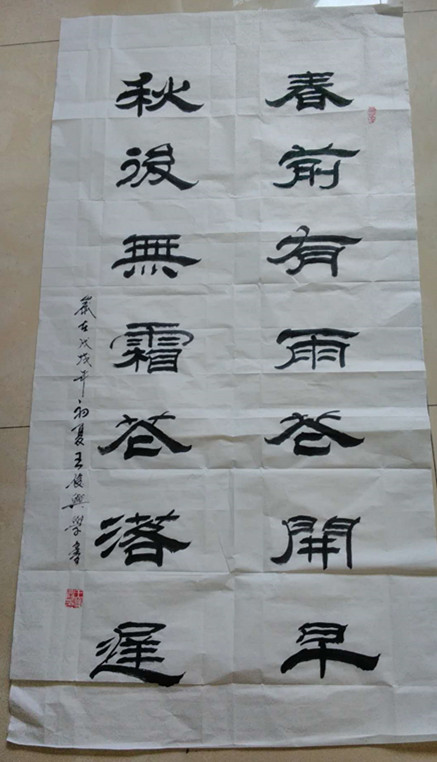 春前有雨花開早
秋後無霜花落遲
歲在戊戌年初夏王俊興學書